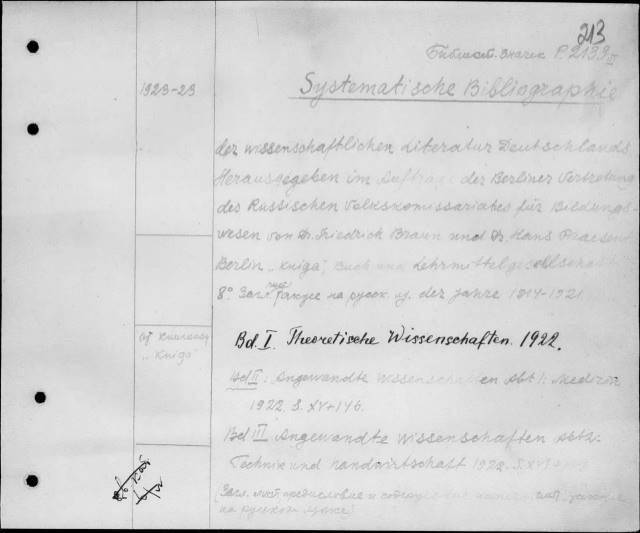 213
Библиот. Značек P. 2139 II
1923-23
Systematische Bibliographie
der wissenschaftlichen Literatur Deutschlands
Herausgegeben im Auftrage der Berliner Vertretung
des Russischen Volkskomissariates für Bildungs-
wesen von Dr. Friedrich Braun und Dr. Hans Praesent
Berlin „Kniga", Buch und Lehrmittelgesellschaft
8° на русск. яз. der Jahre 1914-1921
Bd. I. Theoretische Wissenschaften. 1922.
„Kniga"
Bd II. Angewandte Wissenschaften Abt 1. Medizin
1922. S. XV+146.
Bd III Angewandte Wissenschaften Abt 2.
Technik und Landwirtschaft 1922. S. XVI+
(Загл. лист предисловие и также
на русском языке)